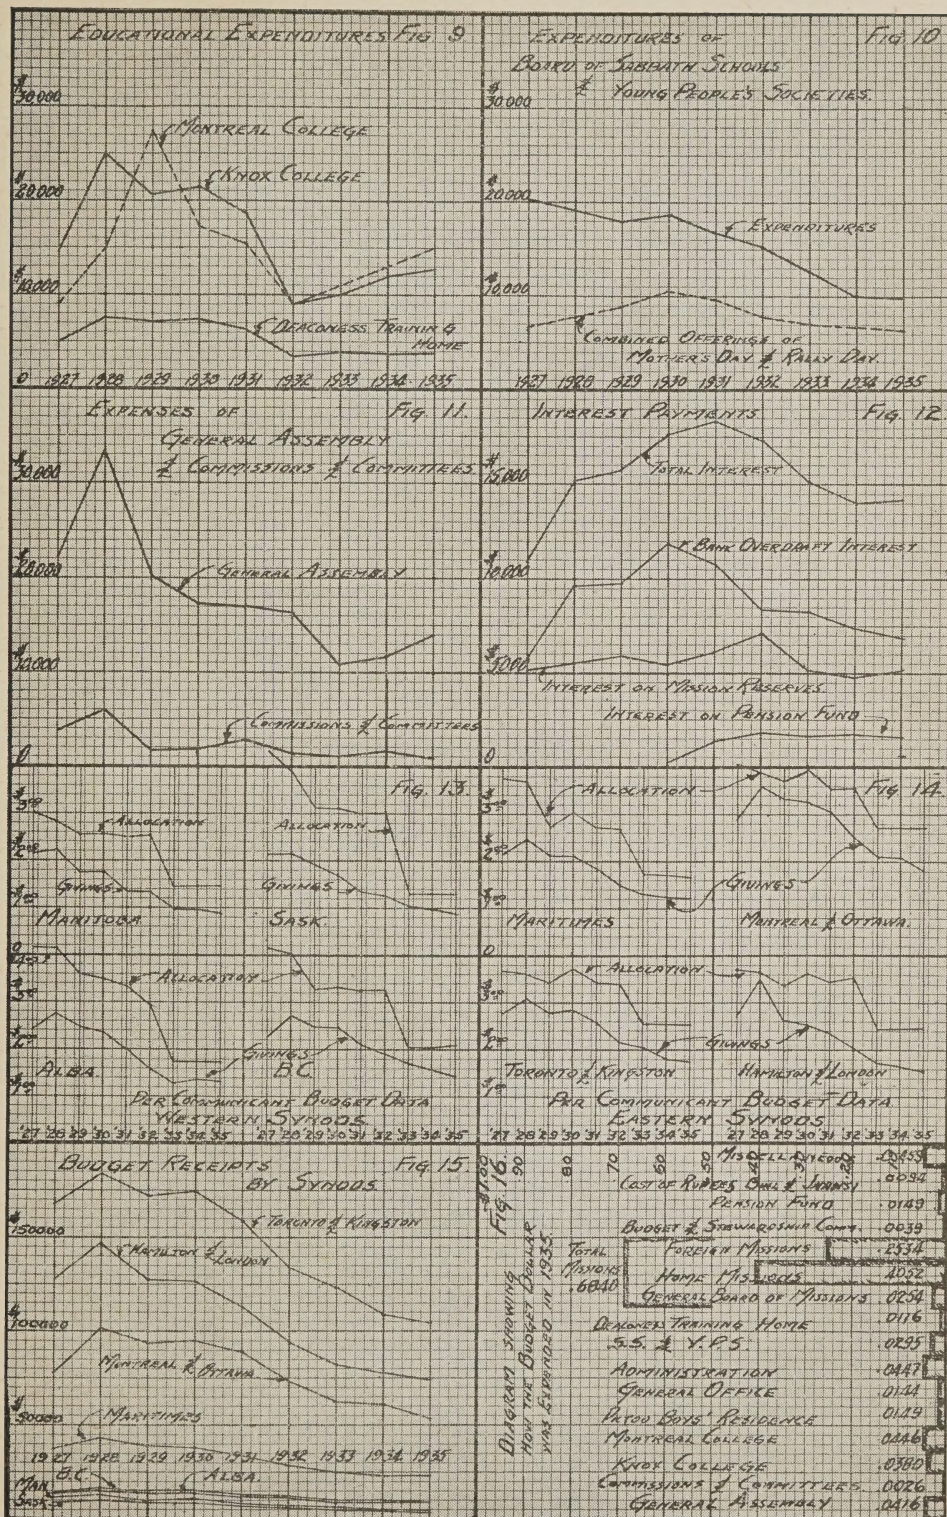 EDUCATIONAL EXPENDITURES FIG 9
$ 30,000
MONTREAL COLLEGE
KNOX COLLEGE
$ 20,000
$ 10,000
DEACONESS TRAINING
HOME
0 1927 1928 1929 1930 1931 1932 1933 1934 1935
EXPENDITURES OF FIG 10
BOARD OF SABBATH SCHOOLS
& YOUNG PEOPLE'S SOCIETIES.
$ 30,000
$ 20,000
EXPENDITURES
$ 10,000
COMBINED OFFERINGS OF
MOTHER'S DAY & RALLY DAY.
1927 1928 1929 1930 1931 1932 1933 1934 1935
EXPENSES OF FIG. 11.
GENERAL ASSEMBLY
& COMMISSIONS & COMMITTEES
$ 30,000
$ 20,000
GENERAL ASSEMBLY
$ 10,000
COMMISSIONS & COMMITTEES
0
INTEREST PAYMENTS FIG. 12.
$ 15,000
TOTAL INTEREST
BANK OVERDRAFT INTEREST
$ 10,000
$ 5000
INTEREST ON MISSION RESERVES.
INTEREST ON PENSION FUND
0
FIG. 13.
$ 3.00
ALLOCATION
ALLOCATION
$ 2.00
GIVINGS
GIVINGS
$ 1.00
MANITOBA
SASK.
0
ALLOCATION
$ 3.00
$ 2.00
GIVINGS
ALBA.
B.C.
$ 1.00
PER COMMUNICANT BUDGET DATA
WESTERN SYNODS
'27 '28 '29 '30 '31 '32 '33 '34 '35 '27 '28 '29 '30 '31 '32 '33 '34 '35
FIG 14.
ALLOCATION
$ 3.00
$ 2.00
GIVINGS
$ 1.00
MARITIMES
MONTREAL & OTTAWA.
0
ALLOCATION
$ 3.00
$ 2.00
GIVINGS
TORONTO & KINGSTON
HAMILTON & LONDON
$ 1.00
PER COMMUNICANT BUDGET DATA
EASTERN SYNODS
'27 '28 '29 '30 '31 '32 '33 '34 '35 '27 '28 '29 '30 '31 '32 '33 '34 '35
BUDGET RECEIPTS FIG. 15.
BY SYNODS
TORONTO & KINGSTON
$ 150000
HAMILTON & LONDON
$ 100000
MONTREAL & OTTAWA
$ 50000
MARITIMES
1927 1928 1929 1930 1931 1932 1933 1934 1935
B.C. ALBA.
MAN.
SASK.
FIG. 16.
$1.00 .90 .80 .70 .60 .50 .30 .20
DIAGRAM SHOWING
HOW THE BUDGET DOLLAR
WAS EXPENDED IN 1935.
MISCELLANEOUS
COST OF RUPEES
.0094
PENSION FUND .0149
BUDGET & STEWARDSHIP COMM. .0039
FOREIGN MISSIONS .2534
TOTAL
MISSIONS
.6840
HOME MISSIONS .4052
GENERAL BOARD OF MISSIONS .0254
DEACONESS TRAINING HOME .0116
S.S. & Y.P.S. .0295
ADMINISTRATION .0447
GENERAL OFFICE .0144
BOYS' RESIDENCE .0149
MONTREAL COLLEGE .0446
KNOX COLLEGE .0380
COMMISSIONS & COMMITTEES .0026
GENERAL ASSEMBLY .0416